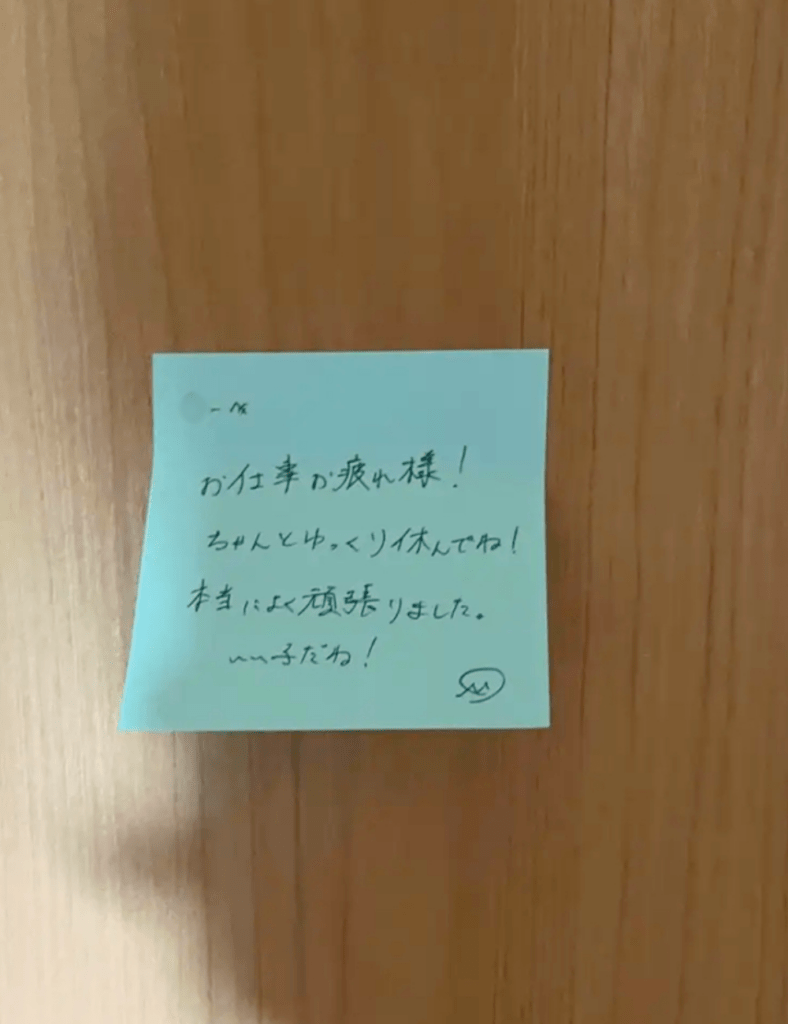 お仕事お疲れ様！
ちゃんとゆっくり休んでね！
本当によく頑張りました。
いい子だね！